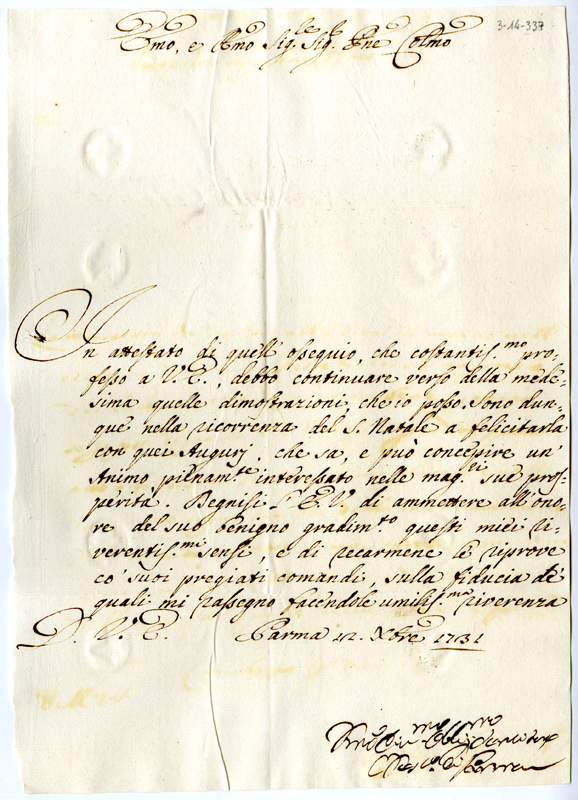 3-14-337
Emo, e Rmo Sig.re Sig.r Pne Colmo
In attestato di quell' ossequio, che costantis.mo pro=
fesso a V. E., debbo continuare verso della mede=
sima quelle dimostrazioni, che io posso. Sono dun=
que nella ricorrenza del S. Natale a felicitarla
con quei Augurj, che sa, e può concepire un'
Animo pienam.te interessato nelle mag.ri sue pros=
perità. Degnisi l'E. V. di ammettere all'ono=
re del suo benigno gradim.to questi miei ri=
verentis.mi sensi, e di recarmene le riprove
co' suoi pregiati comandi, sulla fiducia de'
quali mi rassegno facendole umilis.ma riverenza
D. V. E. Parma 12. Xbre 1731